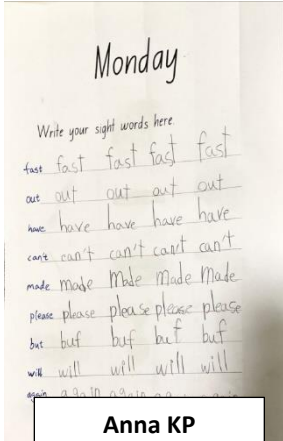 Monday
Write your sight words here.
fast fast fast fast fast
out out out out out
have have have have have
can't can't can't can't can't
made made made made made
please please please please please
but buf buf buf buf
will will will will will
again again again
Anna KP